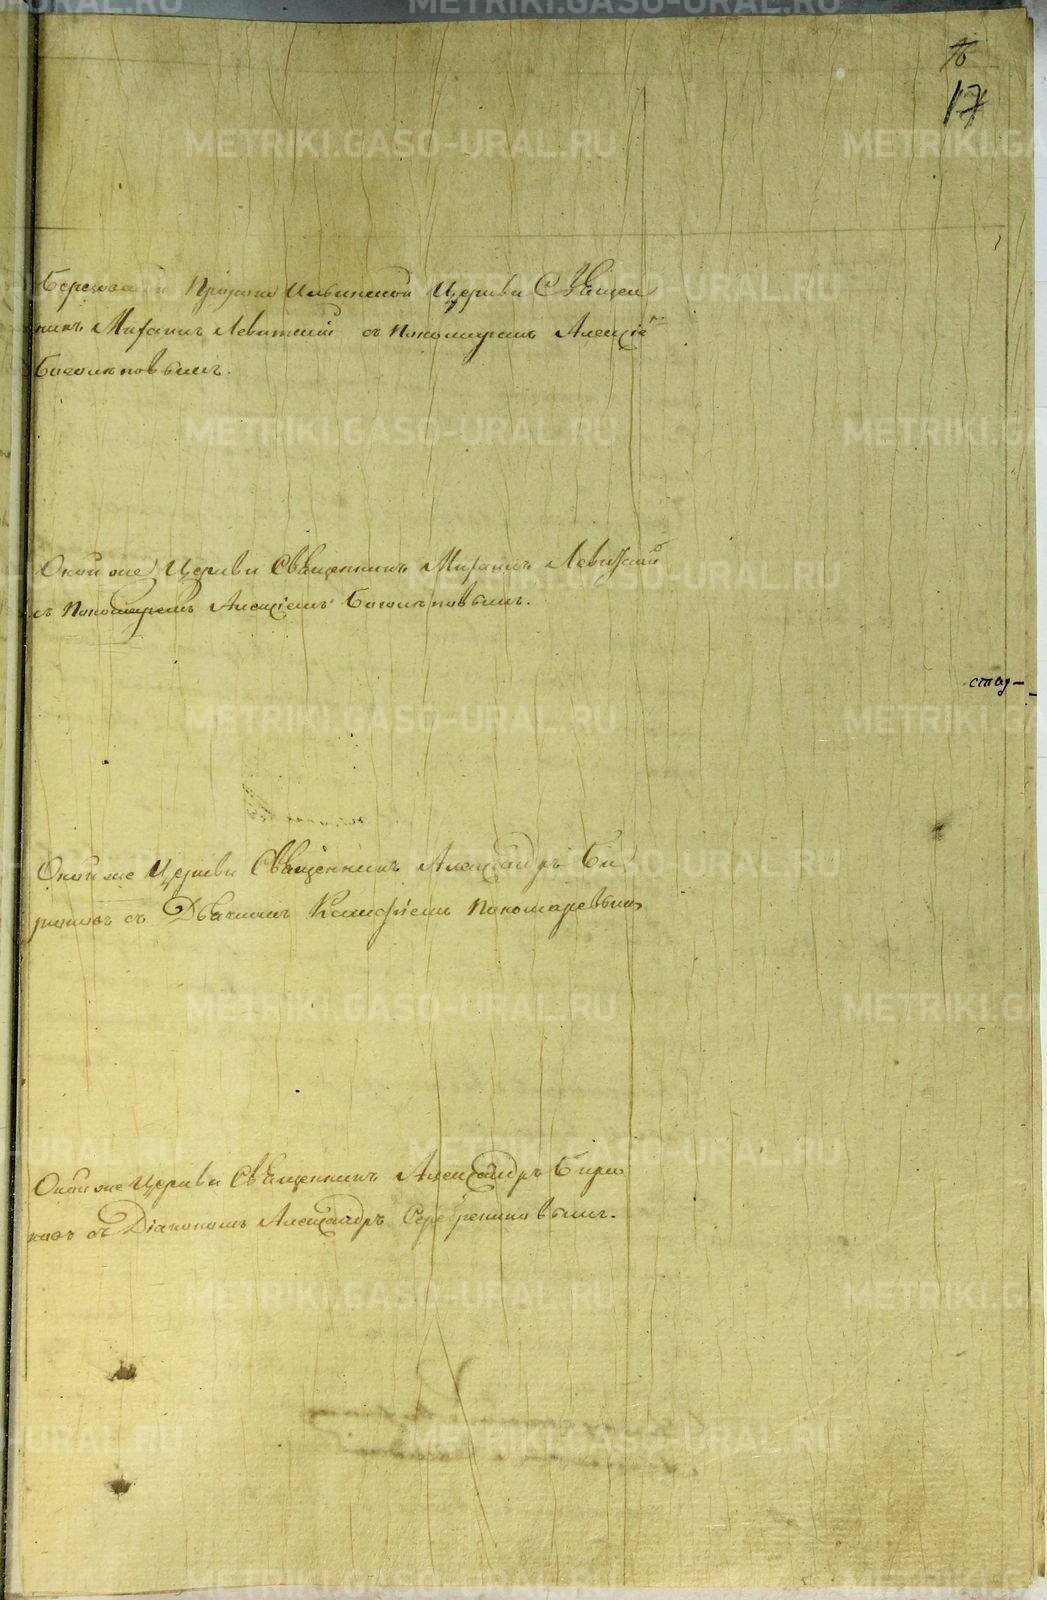 16
17
Березовской Пророко Ильинской Церкви Священ
никъ Михаилъ Левитский съ Пономаремъ Алексіе
Боголеповымъ.
Оной же Церкви Священникъ Михаилъ Левитский
съ Пономаремъ Алексіемъ Боголеповымъ.
стар-
Оной же Церкви Священникъ Александръ Би
рюковъ съ Дьячкомъ Пономаревымъ
Оной же Церкви Священникъ Александръ Бирю
ковъ съ Діакономъ Александръ Серебрениковымъ.
METRIKI.GASO-URAL.RU